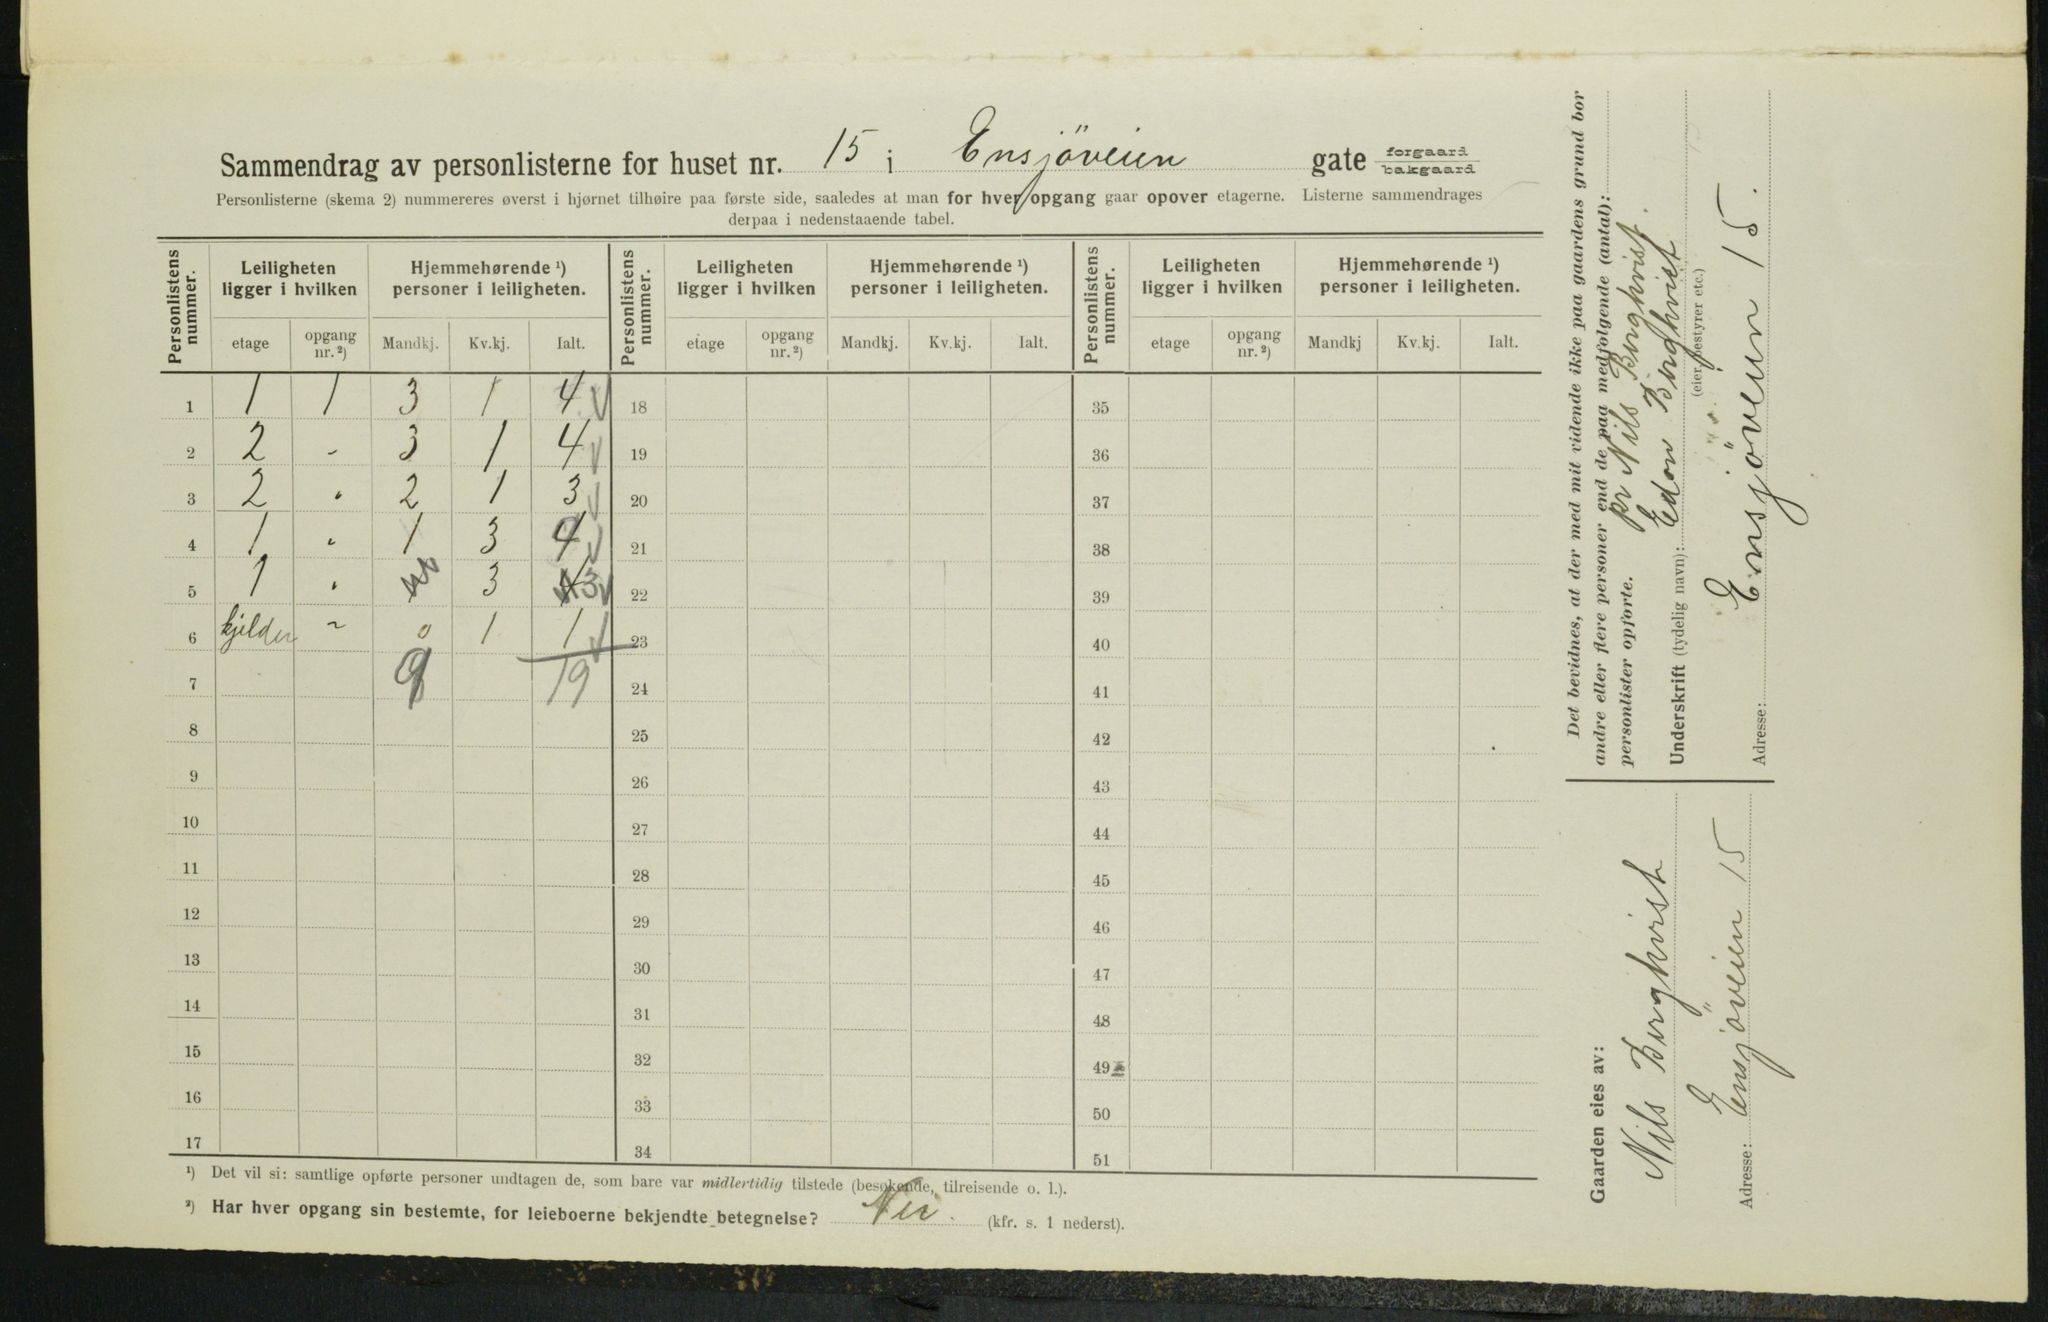 Sammendrag av personlisterne for huset nr. 15 i Ensjöveien gate forgaard bakgaard
Personlisterne (skema 2) nummereres øverst i hjørnet tilhøire paa første side, saaledes at man for hver opgang gaar opover etagerne. Listerne sammendrages
derpaa i nedenstaaende tabel.
Personlistens nummer. Leiligheten ligger i hvilken Hjemmehørende ¹) personer i leiligheten. Personlistens nummer. Leiligheten ligger i hvilken Hjemmehørende ¹) personer i leiligheten. Personlistens nummer. Leiligheten ligger i hvilken Hjemmehørende ¹) personer i leiligheten.
etage opgang nr. ²) Mandkj. Kv.kj. Ialt. etage opgang nr. ²) Mandkj. Kv.kj. Ialt. etage opgang nr. ²) Mandkj Kv.kj. Ialt.
1 1 1 3 1 4 18 35
2 2 - 3 1 4 19 36
3 2 " 2 1 3 20 37
4 1 " 1 3 4 21 38
5 1 " 3 3 22 39
6 kjelder " 0 1 1 23 40
7 9 19 24 41
8 25 42
9 26 43
10 27 44
11 28 45
12 29 46
13 30 47
14 31 48
15 32 49
16 33 50
17 34 51
¹) Det vil si: samtlige opførte personer undtagen de, som bare var midlertidig tilstede (besøkende, tilreisende o. l.).
²) Har hver opgang sin bestemte, for leieboerne bekjendte betegnelse? Nei. (kfr. s. 1 nederst).
Det bevidnes, at der med mit vidende ikke paa gaardens grund bor
andre eller flere personer end de paa medfolgende (antal):
personlister opførte.
pr Nils Berghvist.
Underskrift (tydelig navn): Berghvist
(eier, bestyrer etc.)
Adresse: Ensjöveien 15.
Gaarden eies av:
Nils Berghvist
Adresse: Ensjöveien 15